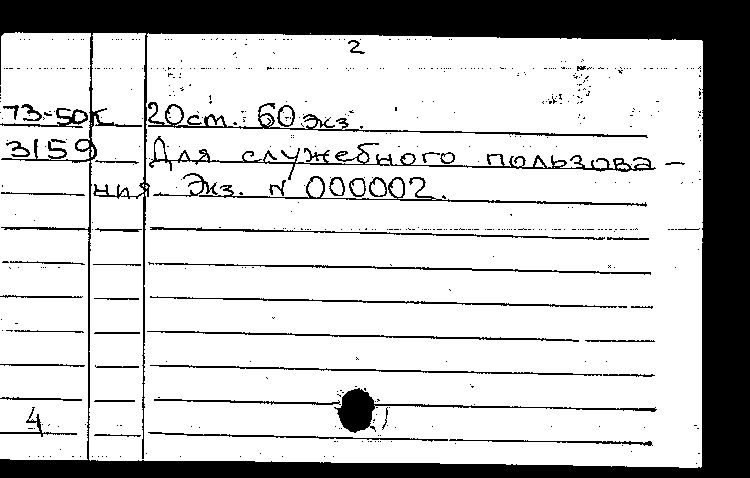 2
73-50К 20ст. 60 экз.
3159 Для служебного пользова-
ния. Экз. N 000002.
4